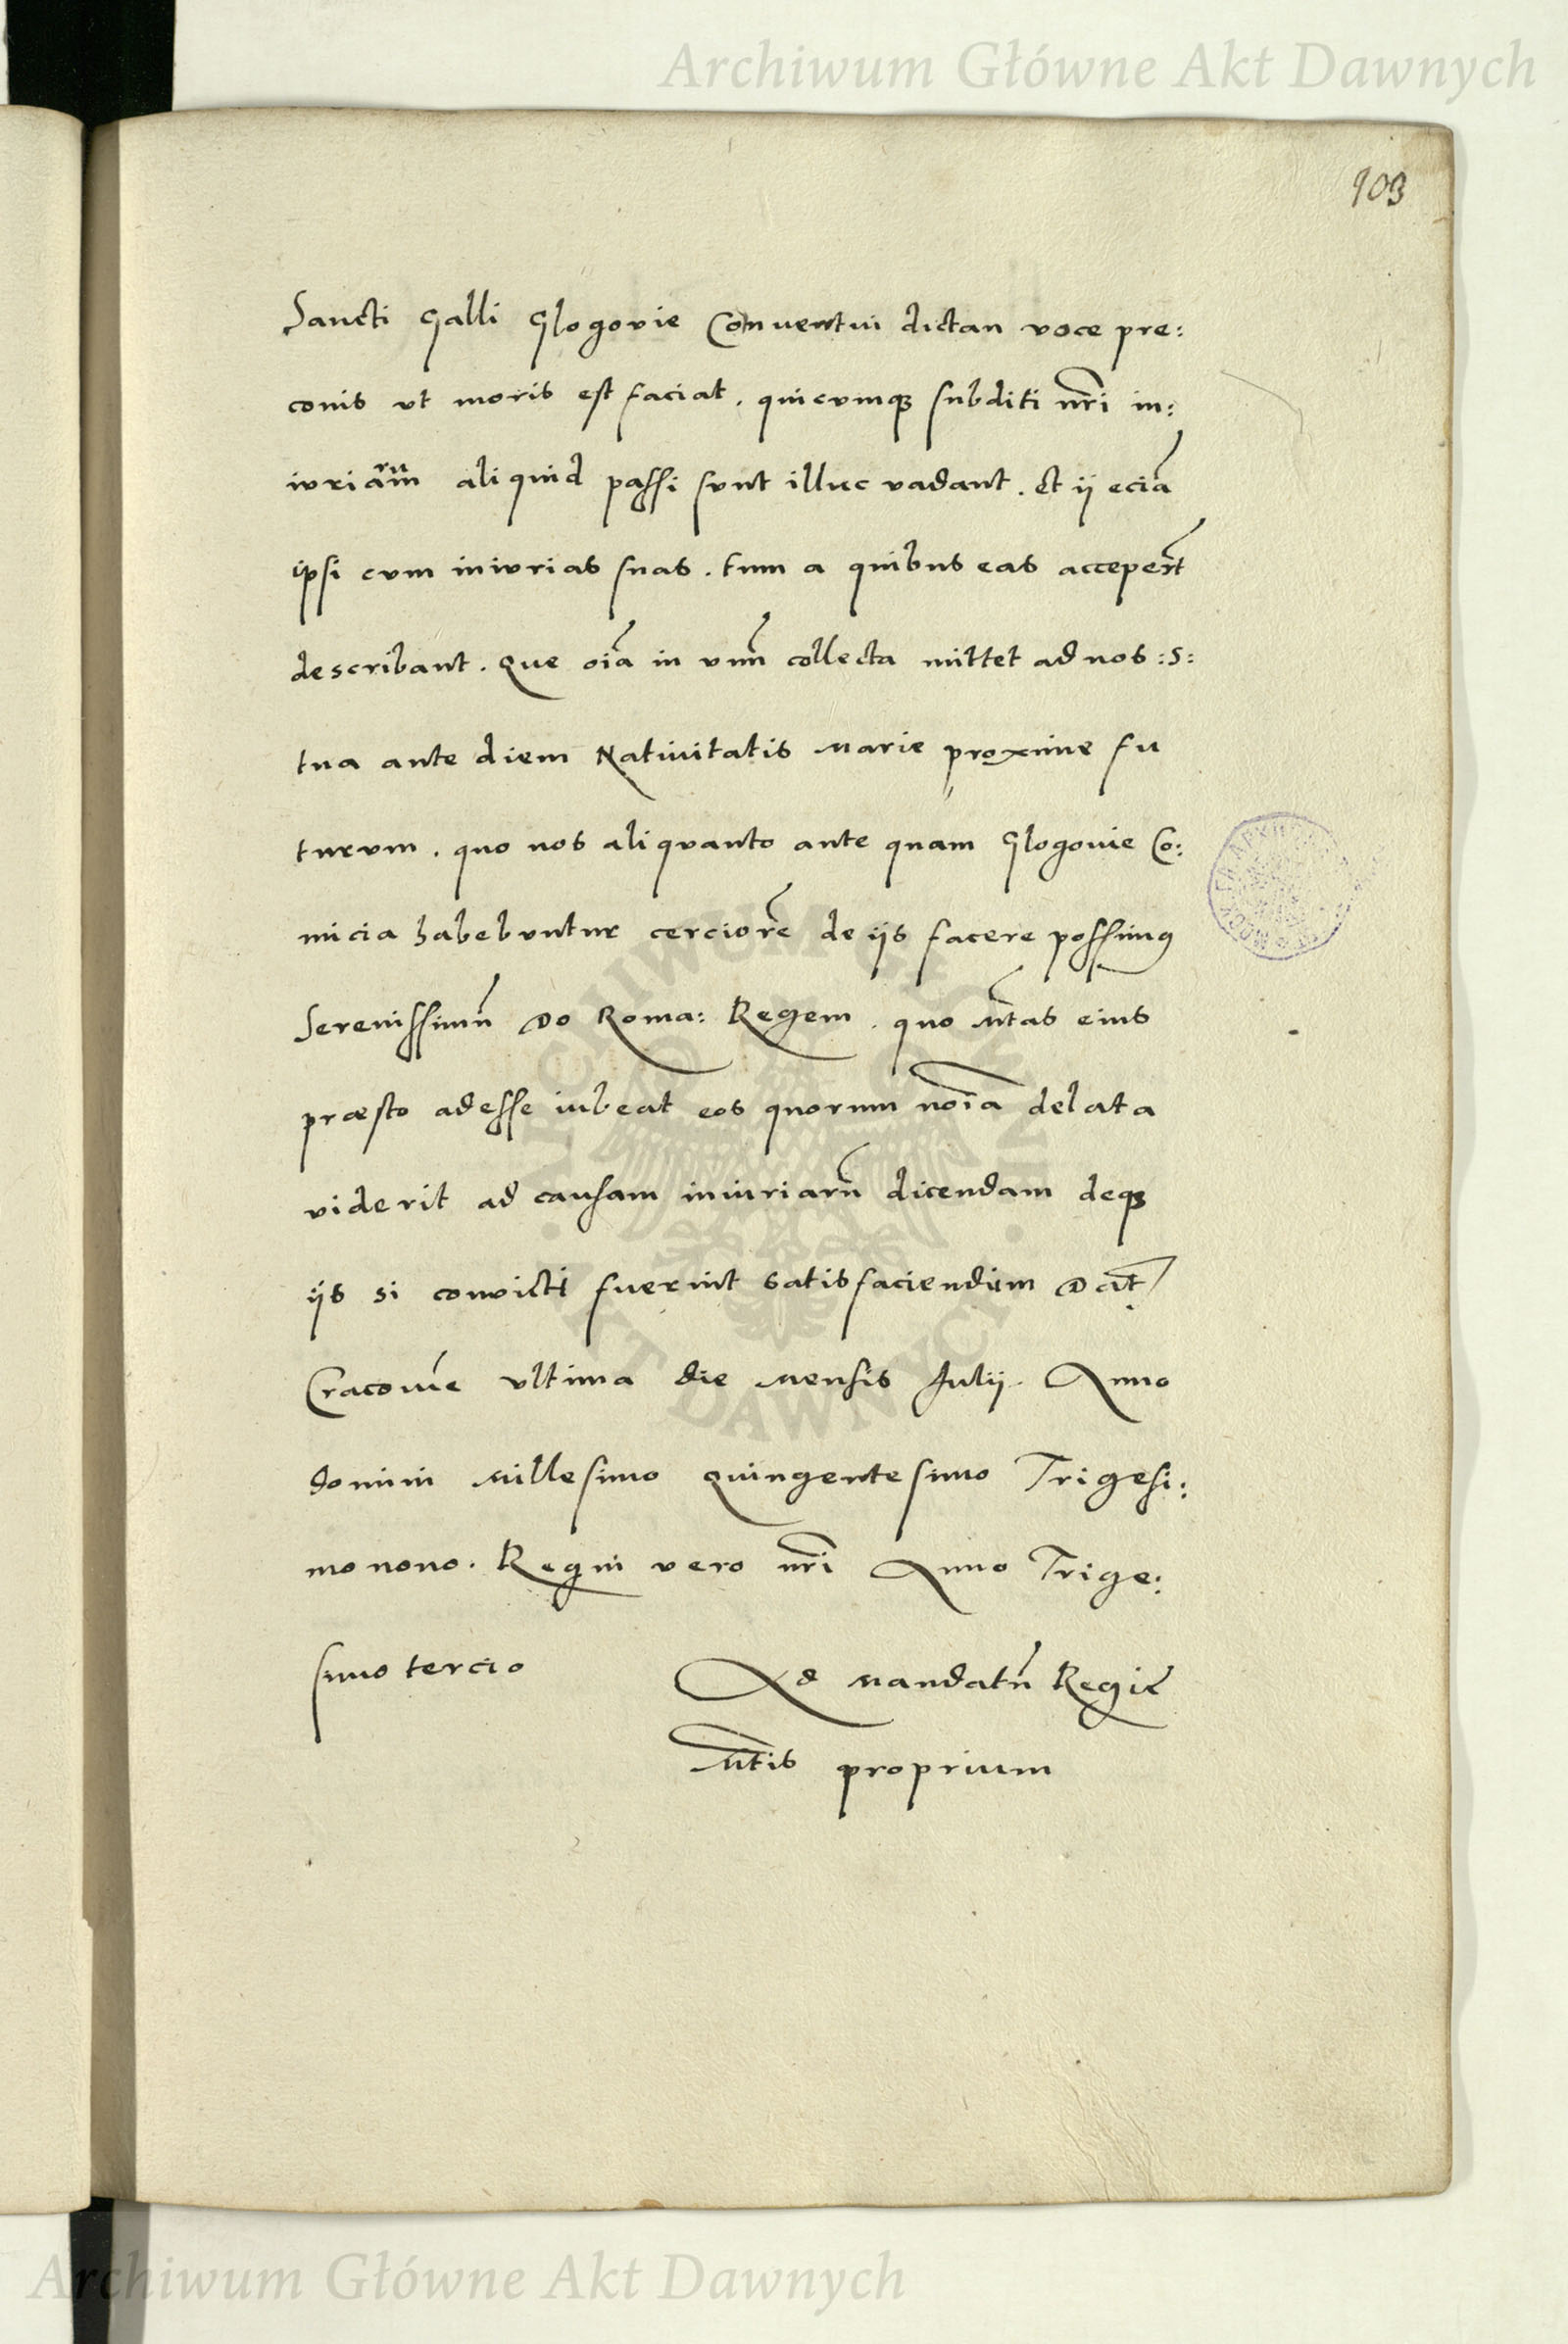 Archiwum Główne Akt Dawnych
103
Sancti Galli Glogovie Conventui dictan voce pre:
conis ut moris est faciat. quicumqꝫ subditi nr̄i in:
iuriarum aliquid passi sunt illuc vadant. Et ij eciā
ipsi cum iniurias suas. tum a quibus eas acceper̄t
describant. Que oīa in unū collecta mittet ad nos :S:
tua ante diem Nativitatis Marie proxime fu
turum. quo nos aliquanto ante quam Glogovie Co:
micia habebuntur cerciorē de ijs facere possimꝰ
Serenissimū Do Roma: Regem. quo Mt̄as eius
præsto adesse iubeat eos quorum noīa delata
viderit ad causam iniuriarū dicendam deqꝫ
ijs si convicti fuerint satisfaciendum Dat̄
Cracovie ultima die Mensis Julij. Anno
domini Millesimo Quingentesimo Trigesi:
mo nono. Regni vero nr̄i Anno Trige:
simo tercio
Ad Mandatū Regie
Mt̄is proprium
ARCHIWUM GŁÓWNE AKT DAWNYCH
Archiwum Główne Akt Dawnych